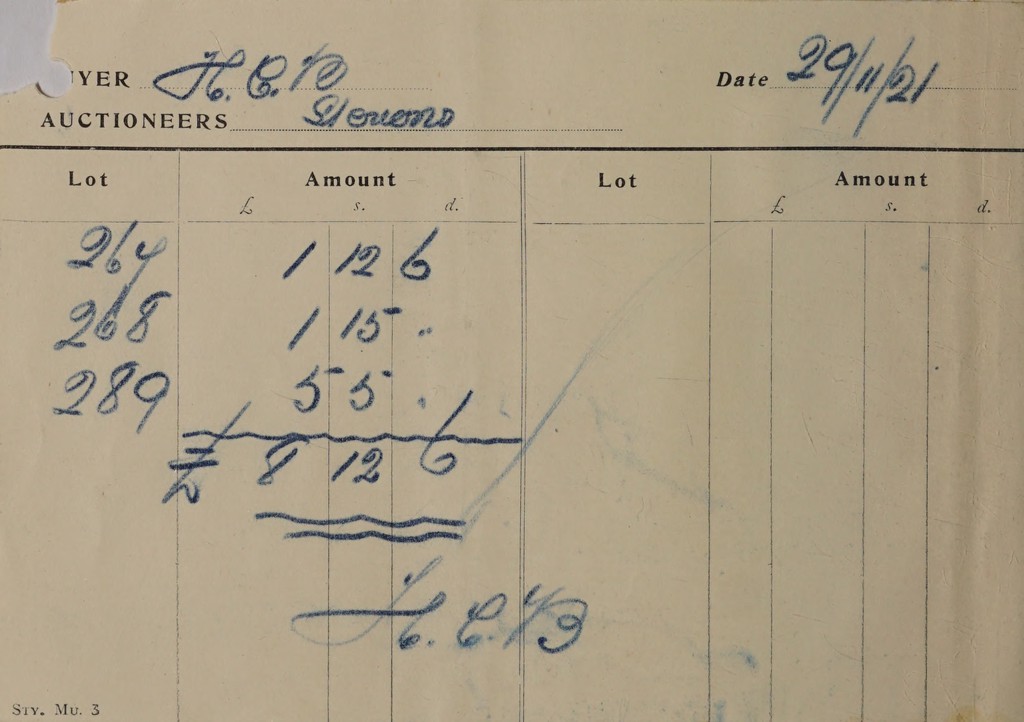 UYER H. C. B
Date 29/11/21
AUCTIONEERS Stevens
Lot Amount Lot Amount
£ s. d. £ s. d.
264 1 12 6
268 1 15 .
289 5 5 .
£ 8 12 6
H. C. B
STY. MU. 3